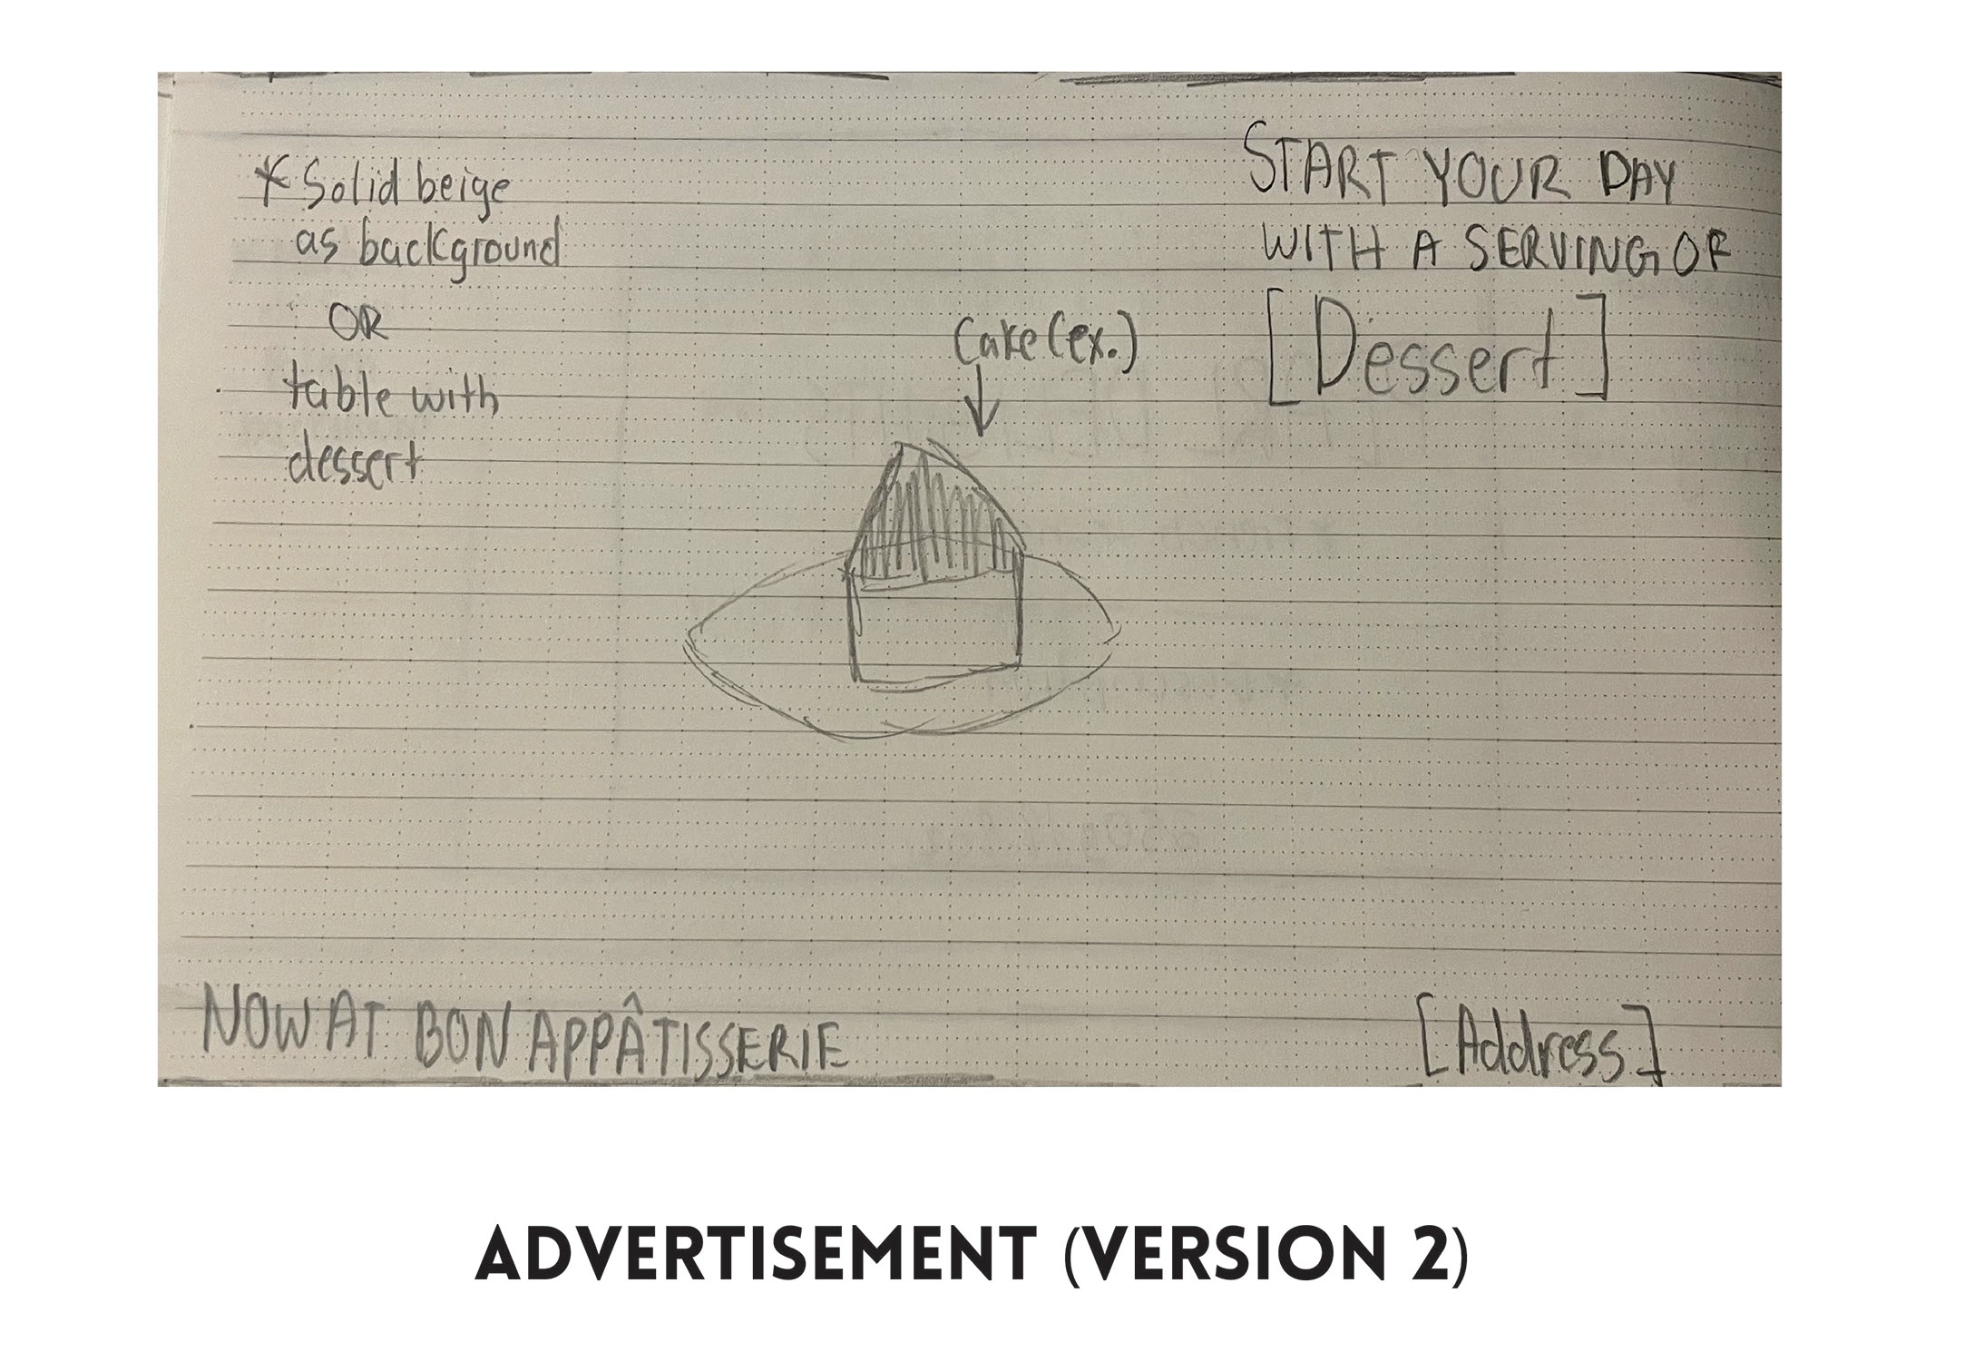 * Solid beige
as background
OR
table with
dessert
START YOUR DAY
WITH A SERVING OF
[Dessert]
Cake (ex.)
NOW AT BON APPÂTISSERIE
[Address]
ADVERTISEMENT (VERSION 2)